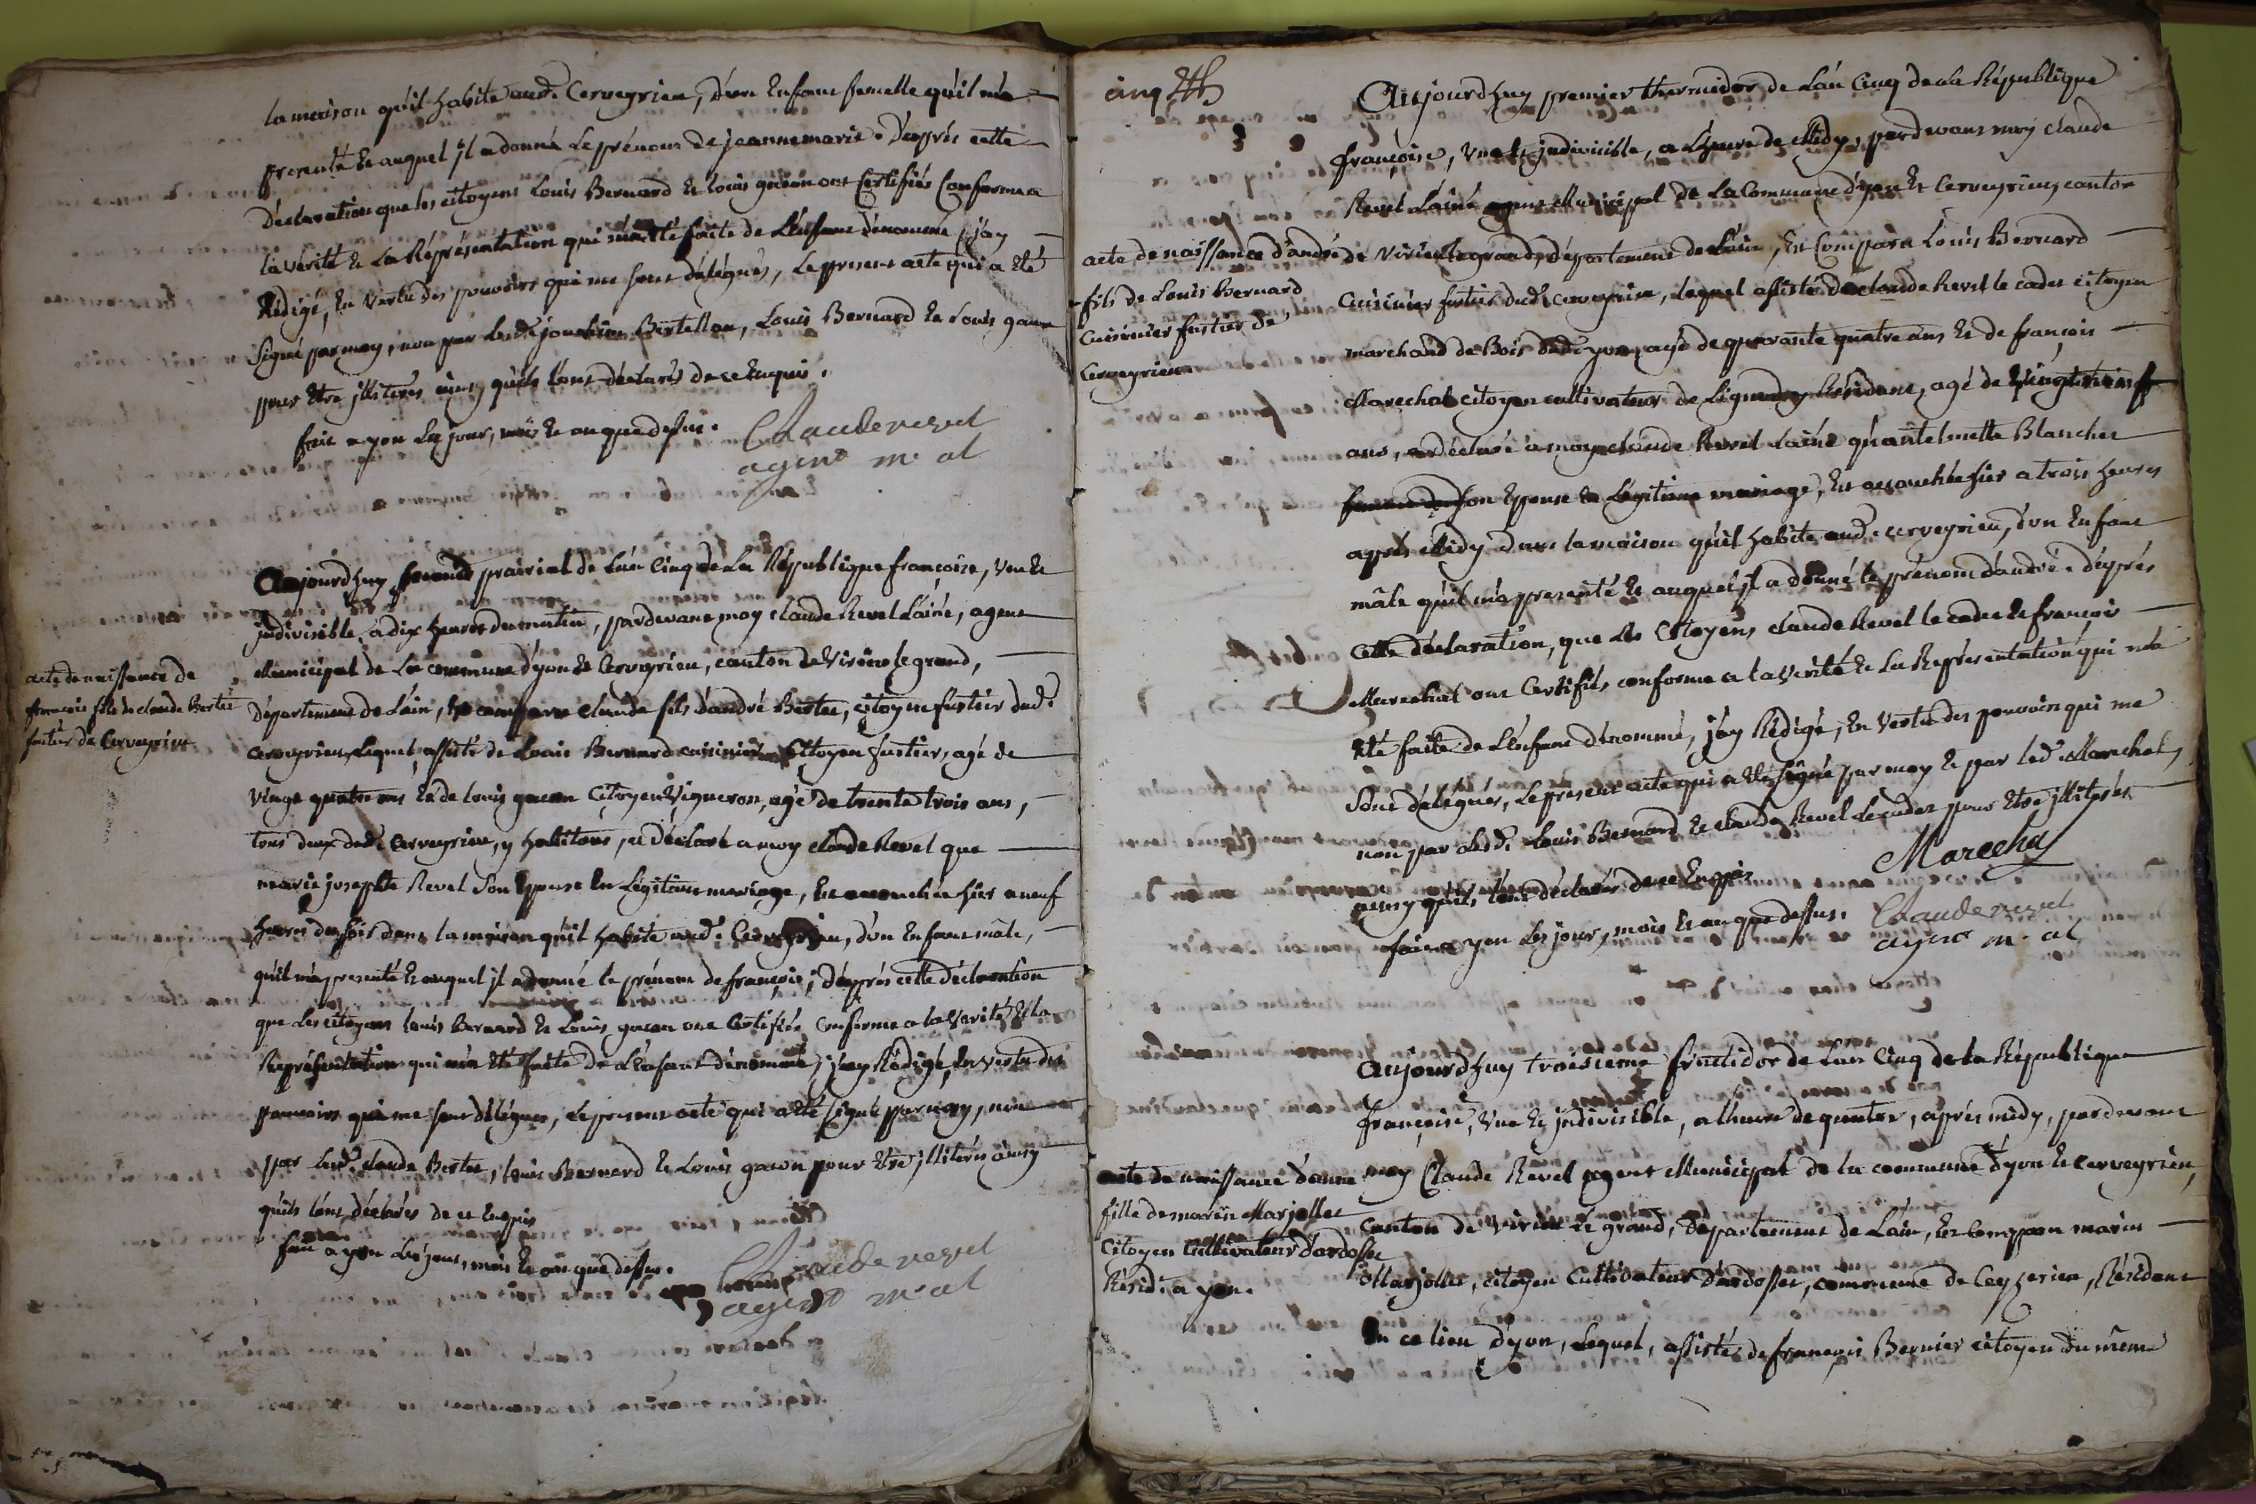 la maison qu'il habite aud. Cerveyrieu, d'un Enfant femelle qu'il m'a
presenté Et auquel jl a donné Le prénom de jeanne marie. D'aprés cette
Déclaration que les citoyens Louis Bernard Et louis gacon ont Certifiés Conforme a
la vérité Et La Réprésentation qui m'a été faite de L'énfant dénommé, j'ay
Rédigé, En vertu des pouvoirs qui me sont délégués, Le present acte qui a Eté
Signé par moy, non par Led. Bertillon, Louis Bernard Et Louis gacon
pour Etre jllitérés ainsy qu'ils l'ont déclarés de ce Enquis.
fait a yon Les jour, mois Et an que dessus. Claude revel
agent m.al
Aujourd'huy second prairial de L'án Cinq de La République françoise, Vne Et
jndivisible, a dix heures du matin, pardevant moy Claude Revel L'áiné, agent
Municipal de La commune d'yon Et Cerveyrieu, canton de Virieu le grand,
acte de naissance de
françois fils de claude Bertet
fustier de Cerveyrieu
Département de L'áin, Est comparu Claude fils d'andré Bertet, citoyen fustier dud.
Cerveyrieu, Lequel, assisté de Louis Bernard cuisinier Citoyen fustier, agé de
Vingt quatre ans Et de louis gacon Citoyen Vigneron, agé de trente trois ans,
tous deux dud. Cerveyrieu, y habitans, a déclaré a moy Claude Revel que
marie josephte Revel Son Epouse En Légitime mariage, Est accouchée hier a neuf
heures du soir dans la maison qu'il habite aud. Cerveyrieu, d'un Enfant mâle,
qu'il m'a presenté Et auquel jl a donné le prénom de françois; d'áprés cette déclaration
que Les citoyens louis Bernard Et Louis gacon ont Certifiés Conforme a la Vérité Et la
Représentation qui m'a été faite de L'énfant dénommé, j'ay Rédigé, En vertu des
pouvoirs qui me sont délégués, Le present acte qui a Eté signé par moy, non
par Led. claude Bertet, louis Bernard Et Louis gacon pour Etre jllitérés ainsy
qu'ils l'ont déclarés de ce Enquis
fait a yon Les jour, mois Et an que dessus. Claude revel
agent m.al
cinq
Aujourd'huy premier thermidor de L'án Cinq de la République
françoise, Vne Et jndivisible, a L'heure de Midy, pardevant moy Claude
Revel L'áiné agent Municipal de La Commune d'yon Et Cerveyrieu, canton
acte de naissance d'andré
fils de Louis Bernard
Cuisinier fustier de
Cerveyrieu
de Virieu le grand, département de L'áin, Est Comparu Louis Bernard
Cuisinier fustier dud. Cerveyrieu, Lequel assisté de claude Revel le cadet citoyen
marchand de Bois dud. yon, agé de quarante quatre ans Et de françois
Marechal citoyen cultivateur de Résidant, agé de
ans, a déclaré a moy Claude Revel L'áiné qu'antelmette Blanchet
son Epouse En Légitime mariage, Est accouchée hier a trois heures
aprés Midy dans la maison qu'il habite aud. cerveyrieu, d'un Enfant
mâle qu'il m'a presenté Et auquel jl a donné le prénom d'andré. d'áprés
Cette déclaration, que Les Citoyens claude Revel le cadet Et françois
Marechal ont Certifiés conforme a la Vérité Et La Représentation qui m'a
Eté faite de L'énfant dénommé, j'áy Rédigé, En Vertu des pouvoirs qui me
Sont délégués, Le present acte qui a Eté Signé par moy Et par led. Marechal,
non par Lesd. Louis Bernard Et Claude Revel Le cadet pour Etre jllitérés
ainsy qu'ils l'ont déclarés de ce Enquis. Marechal
fait a yon Les jour, mois Et an que dessus. Claude revel
agent m.al
Aujourd'huy troisieme fructidor de L'an Cinq de la République
françoise, Vne Et jndivisible, a L'heure de quatre, aprés midy, pardevant
acte de naissance d'anne
fille de marin Marjollet
Citoyen Cultivateur d'ardosset
Résid. a yon.
moy Claude Revel agent Municipal de la commune d'yon Et Cerveyrieu,
Canton de Virieu Le grand, Département de L'áin, Est Comparu marin
Marjollet, citoyen Cultivateur D'ardosset, commune de Ceyzerieu, Résidant
En ce lieu d'yon, Lequel, assisté de françois Bernier citoyen du même